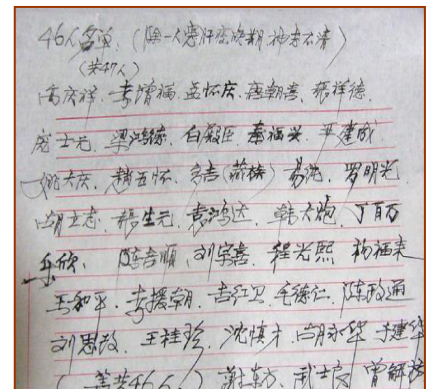 46人名单：(除一人患肝癌晚期神志不清)
(共47人)
高庆祥、李增福、孟怀庆、唐朝喜、张祥德、
庞士元、梁鸿德、白殿臣、秦福兴、尹建成
姚大庆、赵五怀、多吉(藏族)、易滤、罗明光
胡立志、杨生元、袁鸿达、韩大炮、丁百万
乐欣、陈吉顺、刘宗喜、程光熙、杨福来
王和平、李援朝、吉红卫、毛德仁、陈政通
刘思故、王桂珍、沈慎才、胡永华、于建华
(善共46人) 谢东方、武士